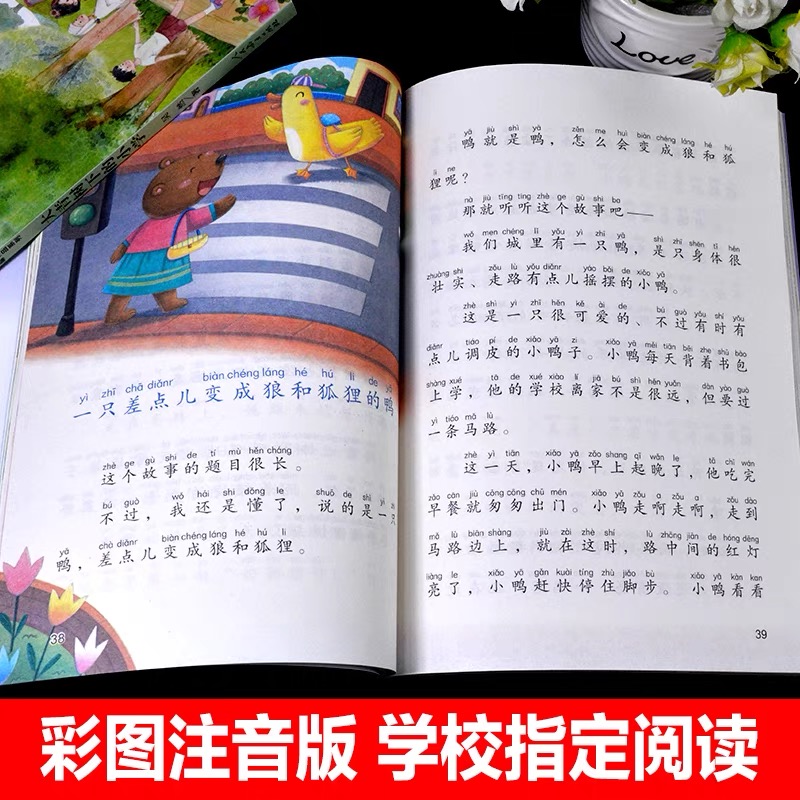 Love
yì zhī chā diǎnr biàn chéng láng hé hú li de yā
一只差点儿变成狼和狐狸的鸭
zhè ge gù shi de tí mù hěn cháng
这个故事的题目很长。
bú guò wǒ hái shi dǒng le shuō de shì yì
不过，我还是懂了，说的是一只
yā chà diǎnr biàn chéng láng hé hú li
鸭，差点儿变成狼和狐狸。
38
yā jiù shì yā zěn me huì biàn chéng láng hé hú
鸭就是鸭，怎么会变成狼和狐
li ne
狸呢？
nà jiù tīng ting zhè ge gù shi ba
那就听听这个故事吧——
wǒ men chéng lǐ yǒu yì zhī yā shì zhī shēn tǐ hěn
我们城里有一只鸭，是只身体很
zhuàng shi zǒu lù yǒu diǎnr yáo bǎi de xiǎo yā
壮实、走路有点儿摇摆的小鸭。
zhè shì yì zhī hěn kě ài de bú guò yǒu shí yǒu
这是一只很可爱的、不过有时有
diǎnr tiáo pí de xiǎo yā zi xiǎo yā měi tiān bēi zhe shū bāo
点儿调皮的小鸭子。小鸭每天背着书包
shàng xué tā de xué xiào lí jiā bú shì hěn yuǎn dàn yào guò
上学，他的学校离家不是很远，但要过
yì tiáo mǎ lù
一条马路。
zhè yì tiān xiǎo yā zǎo shang qǐ wǎn le tā chī wán
这一天，小鸭早上起晚了，他吃完
zǎo cān jiù cōng cōng chū mén xiǎo yā zǒu a zǒu a zǒu dào
早餐就匆匆出门。小鸭走啊走啊，走到
mǎ lù biān shàng jiù zài zhè shí lù zhōng jiān de hóng dēng
马路边上，就在这时，路中间的红灯
liàng le xiǎo yā gǎn kuài tíng zhù jiǎo bù xiǎo yā kàn kan
亮了，小鸭赶快停住脚步。小鸭看看
39
彩图注音版 学校指定阅读